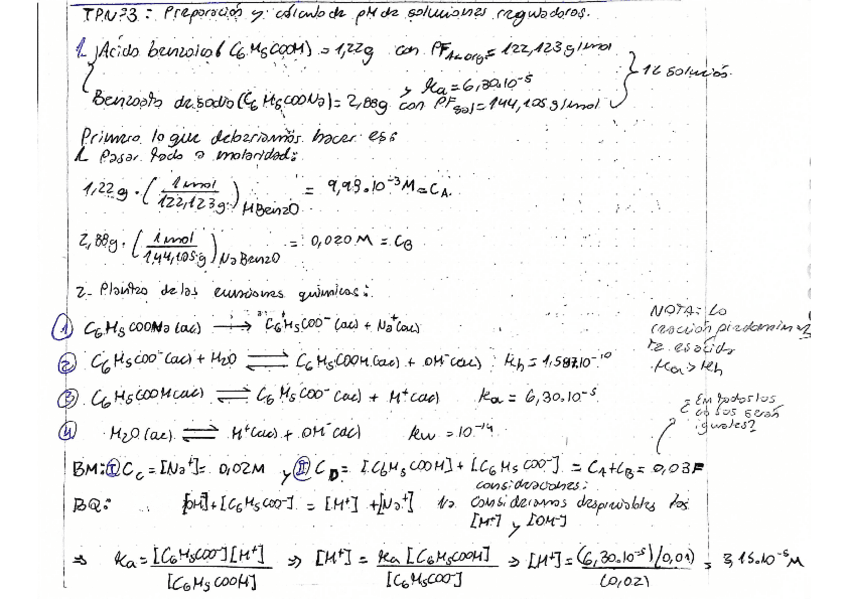 TPNº3: Preparación y cálculo de pH de soluciones reguladoras.
1. Ácido benzoico (C6H5COOH) = 1,22g con PF Ac org = 122,123 g/mol
y ka = 6,30.10^-5
} 1L solución.
Benzoato de sodio (C6H5COONa) = 2,88g con PF sal = 144,105 g/mol
Primero lo que deberíamos hacer es:
1. Pasar todo a molaridad:
1,22g . (1mol / 122,123g) HBenzO = 9,99.10^-3 M = CA
2,88g . (1mol / 144,105g) NaBenzO = 0,020 M = CB
2- Planteo de las ecuaciones químicas:
① C6H5COONa (ac) → C6H5COO^- (ac) + Na^+ (ac)
② C6H5COO^- (ac) + H2O ⇌ C6H5COOH (ac) + OH^- (ac) kh = 1,587.10^-10
③ C6H5COOH (ac) ⇌ C6H5COO^- (ac) + H^+ (ac) ka = 6,30.10^-5
④ H2O (ac) ⇌ H^+ (ac) + OH^- (ac) kw = 10^-14
NOTA: La
reacción predominan
te es ácida
ka > kh
¿En todos los
casos serán
iguales?
BM: Ⅰ Cc = [Na^+] = 0,02M y Ⅱ CD = [C6H5COOH] + [C6H5COO^-] = CA + CB = 0,03F
consideraciones:
BQ: [OH^-] + [C6H5COO^-] = [H^+] + [Na^+] consideramos despreciables los
[H^+] y [OH^-]
⇒ ka = [C6H5COO^-][H^+] / [C6H5COOH] ⇒ [H^+] = ka [C6H5COOH] / [C6H5COO^-] ⇒ [H^+] = (6,30.10^-5)(0,01) / (0,02) = 3,15.10^-5 M